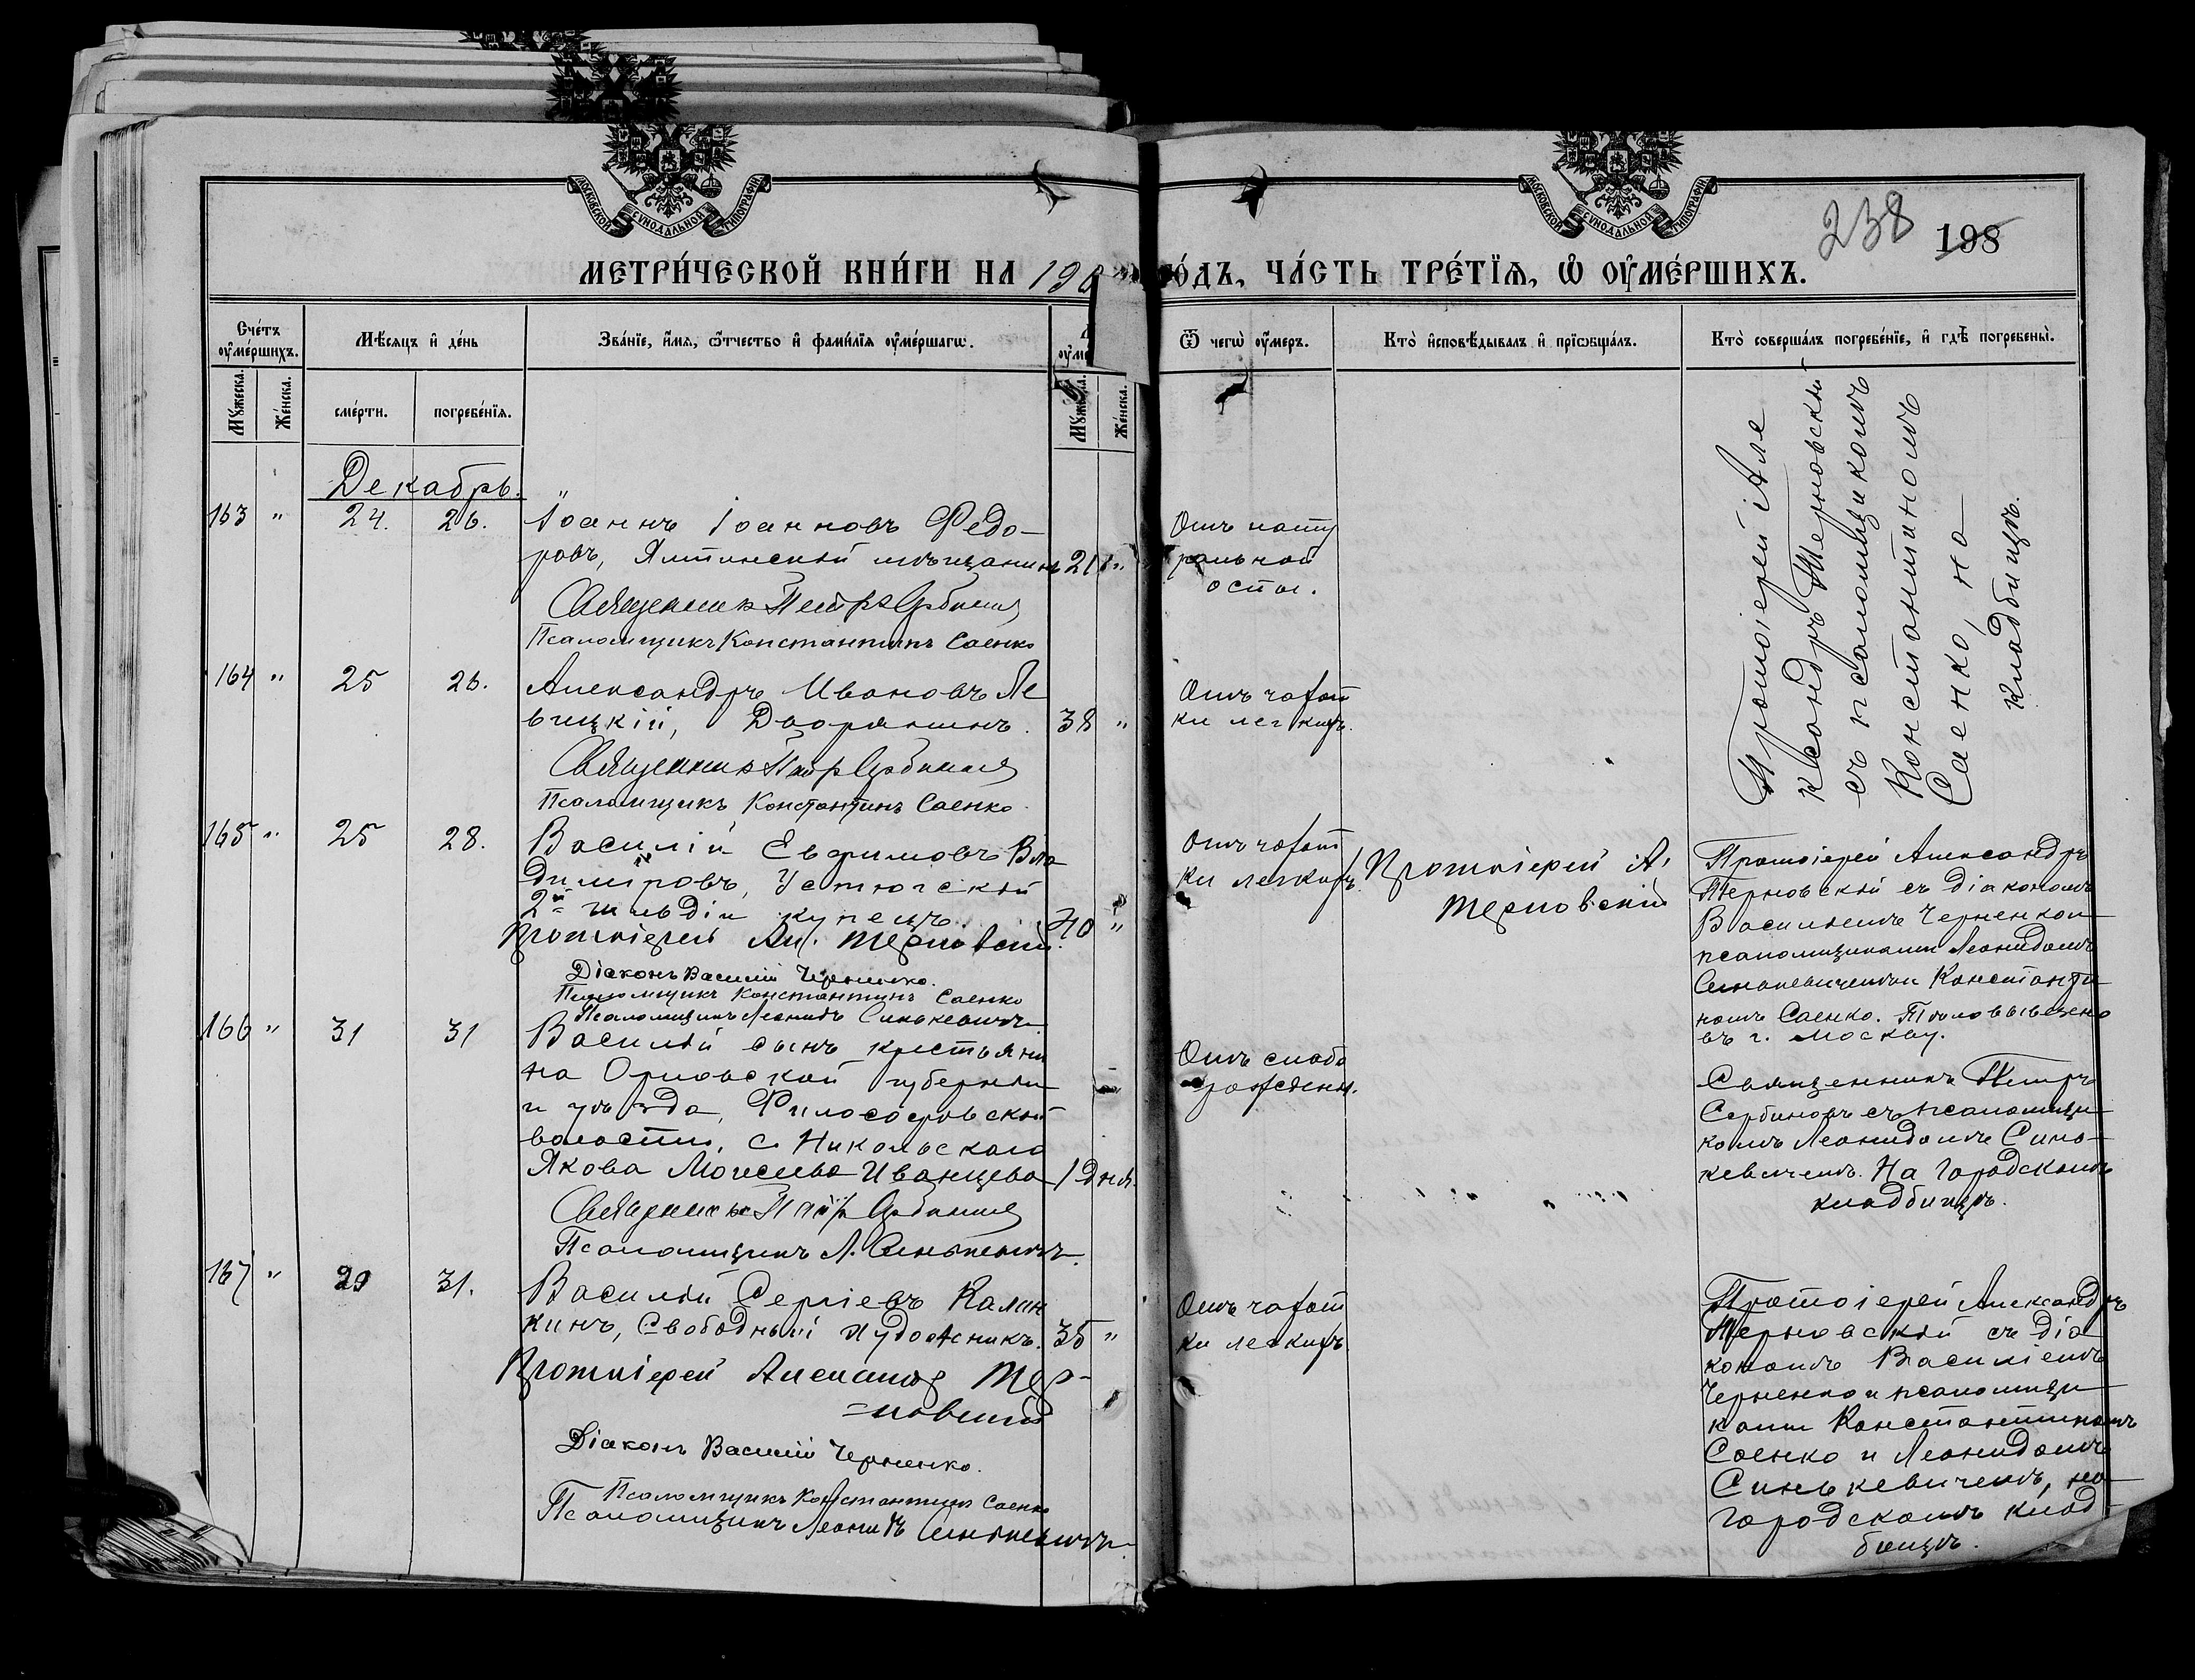 МОСКОВСКОЙ СѴНОДАЛЬНОЙ ТИПОГРАФІИ
МОСКОВСКОЙ СѴНОДАЛЬНОЙ ТИПОГРАФІИ
238 198
МЕТРИ́ЧЕСКОЙ КНИ́ГИ НА 190 ГО́ДЪ, ЧА́СТЬ ТРЕ́ТІѦ, Ѡ҆ ОУ҆МЕ́РШИХЪ.
Сче́тъ оу҆ме́ршихъ.
Мѣ́сяцъ и҆ де́нь
Зва́нїе, и҆́мѧ, ѻ҆́тчество и҆ фами́лїѧ оу҆ме́ршагѡ.
Ѿ чегѡ̀ оу҆́меръ.
Кто̀ и҆сповѣ́дывалъ и҆ прїѡбща́лъ.
Кто̀ соверша́лъ погребе́нїе, и҆ гдѣ̀ погребены̀.
Мꙋ́жеска. Же́нска.
сме́рти. погребе́нїѧ.
Мꙋ́жеска. Же́нска.
Декабрь.
163 " 24. 26. Іоаннъ Іоанновъ Федо-
ровъ, Ялтинскій мѣщанинъ 21 "
Священникъ Петръ Сербиновъ
Псаломщикъ Константинъ Саенко
Отъ нату
ральной
оспы.
Протоіерей Але
ксандръ Терновскій
съ псаломщикомъ
Константиномъ
Саенко, на
кладбищѣ.
164 " 25 26. Александръ Ивановъ Ле
вицкій, Дворянинъ. 38 "
Священникъ Петръ Сербиновъ
Псаломщикъ Константинъ Саенко
Отъ чахот
ки легкихъ.
165 " 25 28. Василій Евфимовъ Вла
диміровъ, Устюгскій
2й гильдіи купецъ. 40 "
Протоіерей Ал. Терновскій.
Діаконъ Василій Черненко.
Псаломщикъ Константинъ Саенко
Псаломщикъ Леонидъ Синькевичъ
Отъ чахот
ки легкихъ.
Протоіерей А.
Терновскій
Протоіерей Александръ
Терновскій съ діакономъ
Василіемъ Черненко и
псаломщиками Леонидомъ
Синькевичемъ и Константи
номъ Саенко. Тѣло вывезено
въ г. Москву.
166 " 31 31 Василій сынъ крестьяни
на Орловской губерніи
и уѣзда, Философовской
волости, с. Никольскаго
Якова Моисеева Иванцева 1 дня.
Священникъ Петръ Сербиновъ
Псаломщикъ Л. Синькевичъ.
Отъ слабо
рожденія.
Священникъ Петръ
Сербиновъ съ псаломщи
комъ Леонидомъ Синь-
кевичемъ. На Городскомъ
кладбищѣ.
167 " 29 31. Василій Сергіевъ Калин
кинъ, Свободный художникъ. 35 "
Протоіерей Александръ Тер-
=новскій
Діаконъ Василій Черненко.
Псаломщикъ Константинъ Саенко
Псаломщикъ Леонидъ Синькевичъ.
Отъ чахот
ки легкихъ.
Протоіерей Александръ
Терновскій съ діа
кономъ Василіемъ
Черненко и псаломщи
ками Константиномъ
Саенко и Леонидомъ
Синькевичемъ, на
Городскомъ клад-
бищѣ.